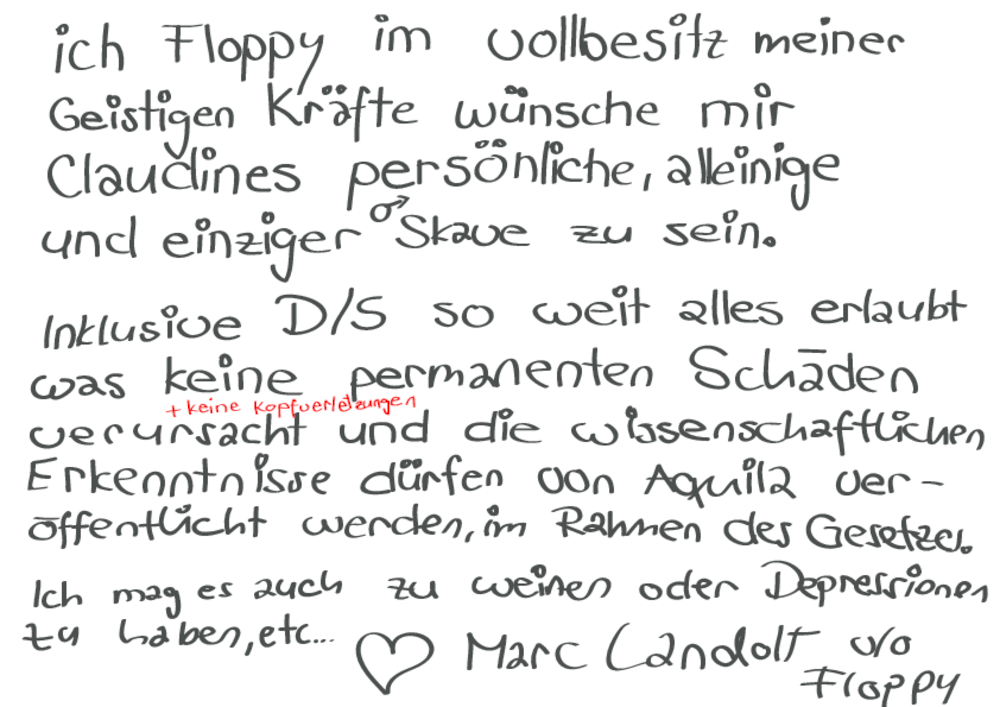 ich Floppy im vollbesitz meiner
Geistigen Kräfte wünsche mir
Claudines persönliche, alleinige
und einziger ♂ Skave zu sein.
Inklusive D/S so weit alles erlaubt
was keine permanenten Schäden
+ keine Kopfverletzungen
verursacht und die wissenschaftlichen
Erkenntnisse dürfen von Aquila ver-
öffentlicht werden, im Rahmen des Gesetzes.
Ich mag es auch zu weinen oder Depressionen
zu haben, etc...
♡ Marc Landolt v/o
Floppy